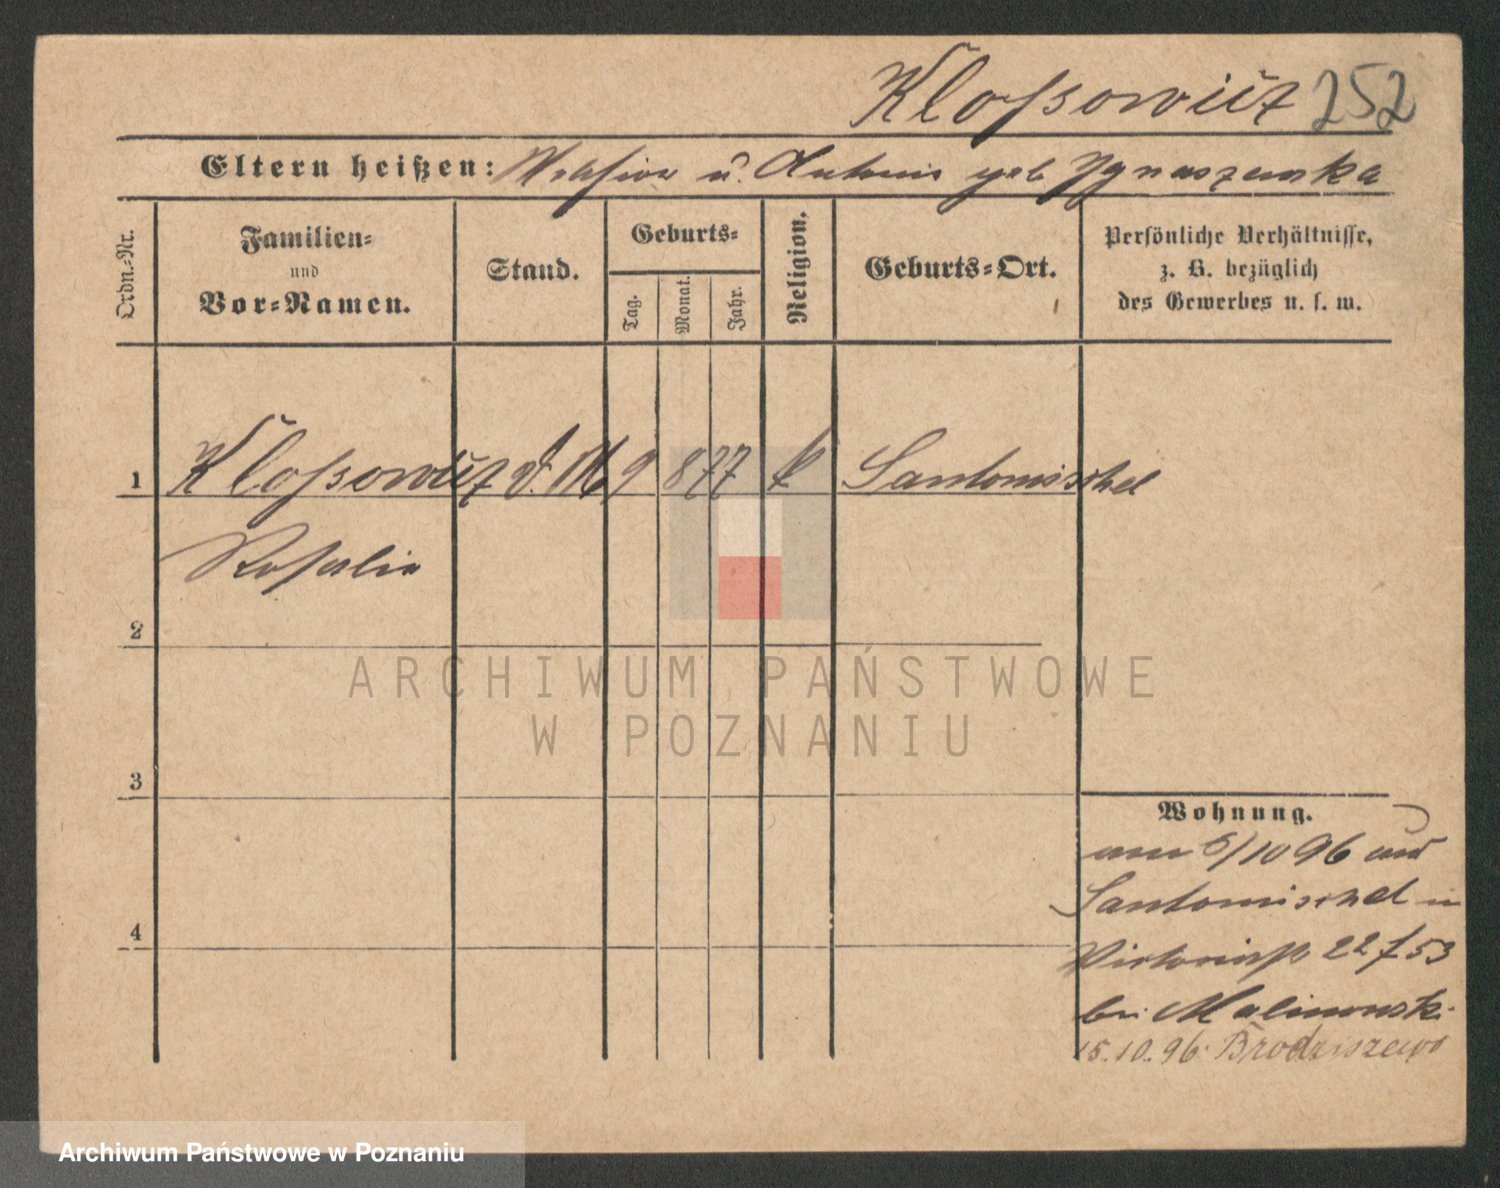 Kloſsowicz 252
Eltern heißen: u. Antonie geb Ignaszewska
Ordn.-Nr.
Familien-
und
Vor-Namen.
Stand.
Geburts-
Tag.
Monat.
Jahr.
Religion.
Geburts-Ort.
Persönliche Verhältnisse,
z. B. bezüglich
des Gewerbes u. s. w.
1 Kloſsowicz d. M 9 8 77 k Santomischel
Rosalie
2
3
4
Wohnung.
am 5/10 96 aus
Santomischel in
Victoriastr 22 f 53
bei Malinowski
15.10.96. Brodziszewo
ARCHIWUM PAŃSTWOWE
W POZNANIU
Archiwum Państwowe w Poznaniu